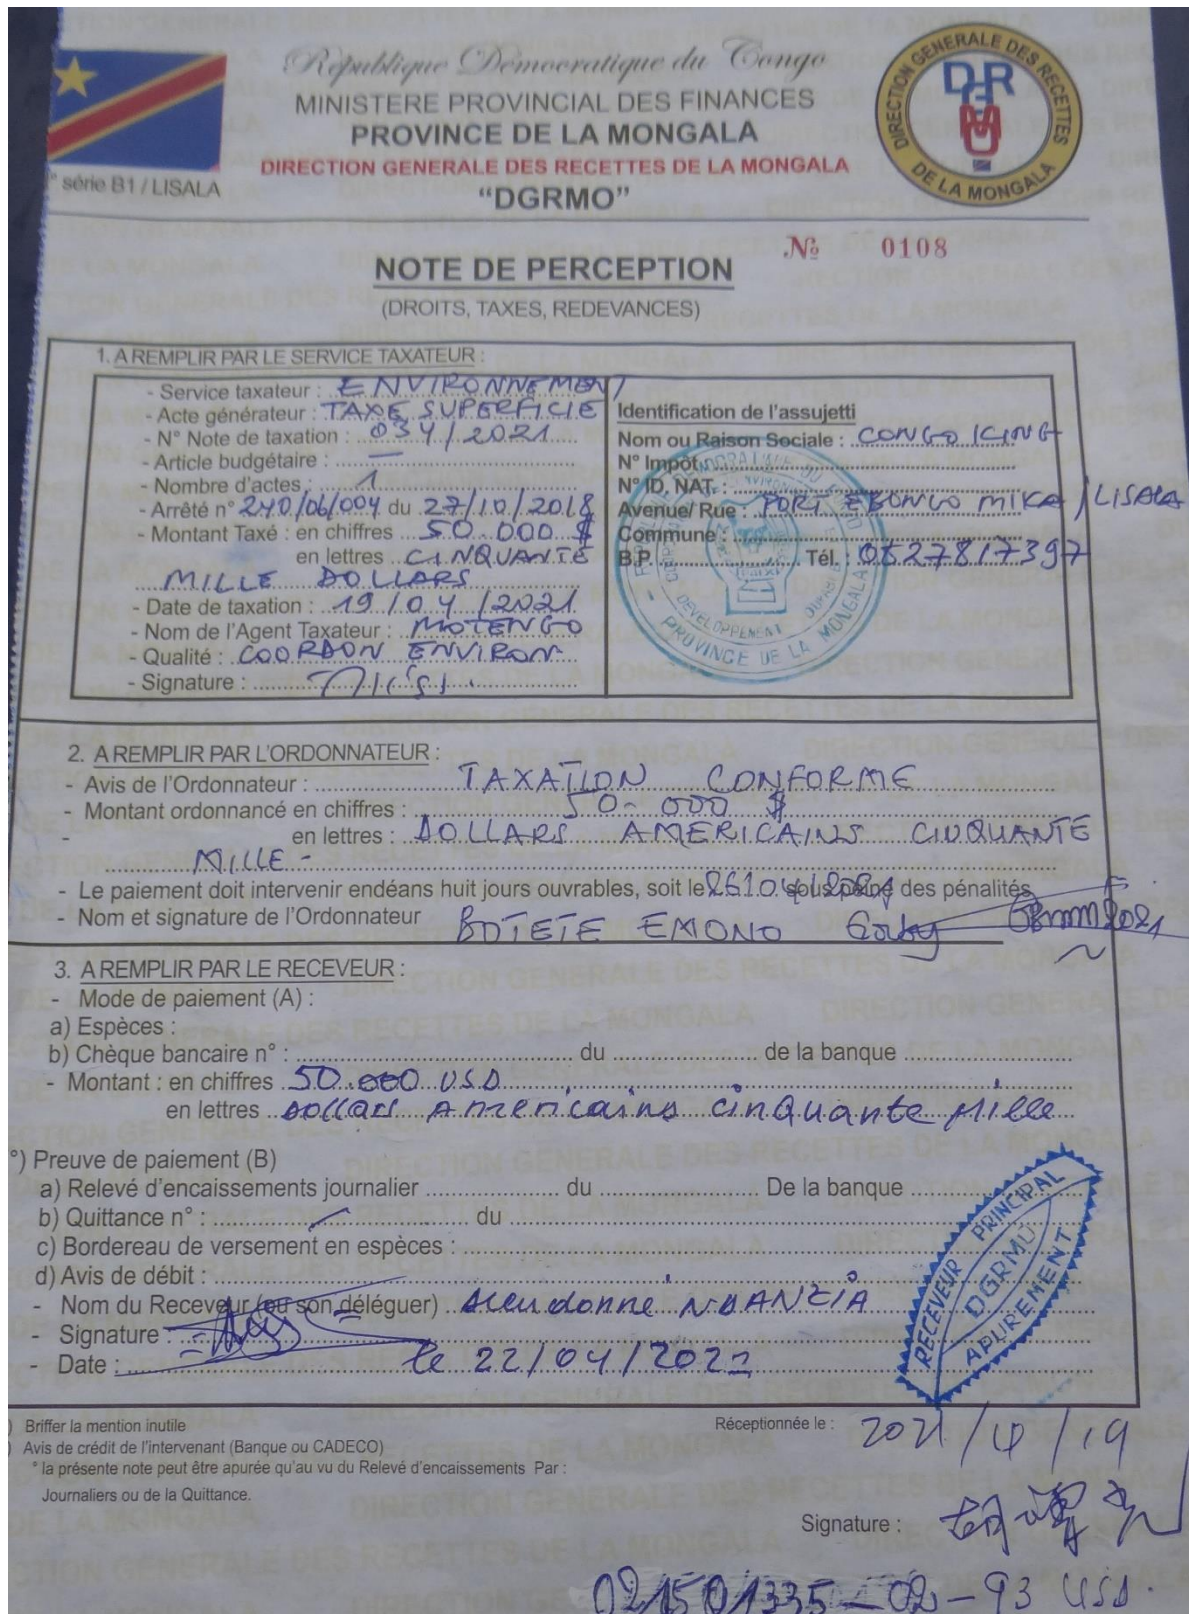 République Démocratique du Congo
MINISTERE PROVINCIAL DES FINANCES
PROVINCE DE LA MONGALA
DIRECTION GENERALE DES RECETTES DE LA MONGALA
"DGRMO"
° série B1 / LISALA
DIRECTION GENERALE DES RECETTES DE LA MONGALA
DGRMO
№ 0108
NOTE DE PERCEPTION
(DROITS, TAXES, REDEVANCES)
1. A REMPLIR PAR LE SERVICE TAXATEUR :
- Service taxateur : ENVIRONNEMENT
- Acte générateur : TAXE SUPERFICIE
- N° Note de taxation : 034/2021
- Article budgétaire : —
- Nombre d'actes : 1
- Arrêté n° 240/06/004 du 27/10/2018
- Montant Taxé : en chiffres 50.000 $
en lettres CINQUANTE
MILLE DOLLARS
- Date de taxation : 19/04/2021
- Nom de l'Agent Taxateur : MOTENGO
- Qualité : COORDON ENVIRON
- Signature :
Identification de l'assujetti
Nom ou Raison Sociale : CONGO KING
N° Impôt
N° ID. NAT. :
Avenue/ Rue : PORT EBONGO MIKA / LISALA
Commune :
B.P. Tél. : 0827817397
DEVELOPPEMENT
PROVINCE DE LA MONGALA
2. A REMPLIR PAR L'ORDONNATEUR :
- Avis de l'Ordonnateur : TAXATION CONFORME
- Montant ordonnancé en chiffres : 50.000 $
- en lettres : DOLLARS AMERICAINS CINQUANTE
MILLE -
- Le paiement doit intervenir endéans huit jours ouvrables, soit le 26/04/2021 sous peine des pénalités
- Nom et signature de l'Ordonnateur BOTETE EMONO
3. A REMPLIR PAR LE RECEVEUR :
- Mode de paiement (A) :
a) Espèces :
b) Chèque bancaire n° : du de la banque
- Montant : en chiffres 50.000 USD
en lettres Dollars Americains cinquante Mille
°) Preuve de paiement (B)
a) Relevé d'encaissements journalier du De la banque
b) Quittance n° : du
c) Bordereau de versement en espèces :
d) Avis de débit :
- Nom du Receveur (ou son déléguer) Dieudonne NDANZIA
- Signature :
- Date : le 22/04/2021
RECEVEUR PRINCIPAL
DGRMO
APUREMENT
) Briffer la mention inutile
) Avis de crédit de l'intervenant (Banque ou CADECO)
° la présente note peut être apurée qu'au vu du Relevé d'encaissements Par :
Journaliers ou de la Quittance.
Réceptionnée le : 2021/4/19
Signature :
021501335-02-93 USD.